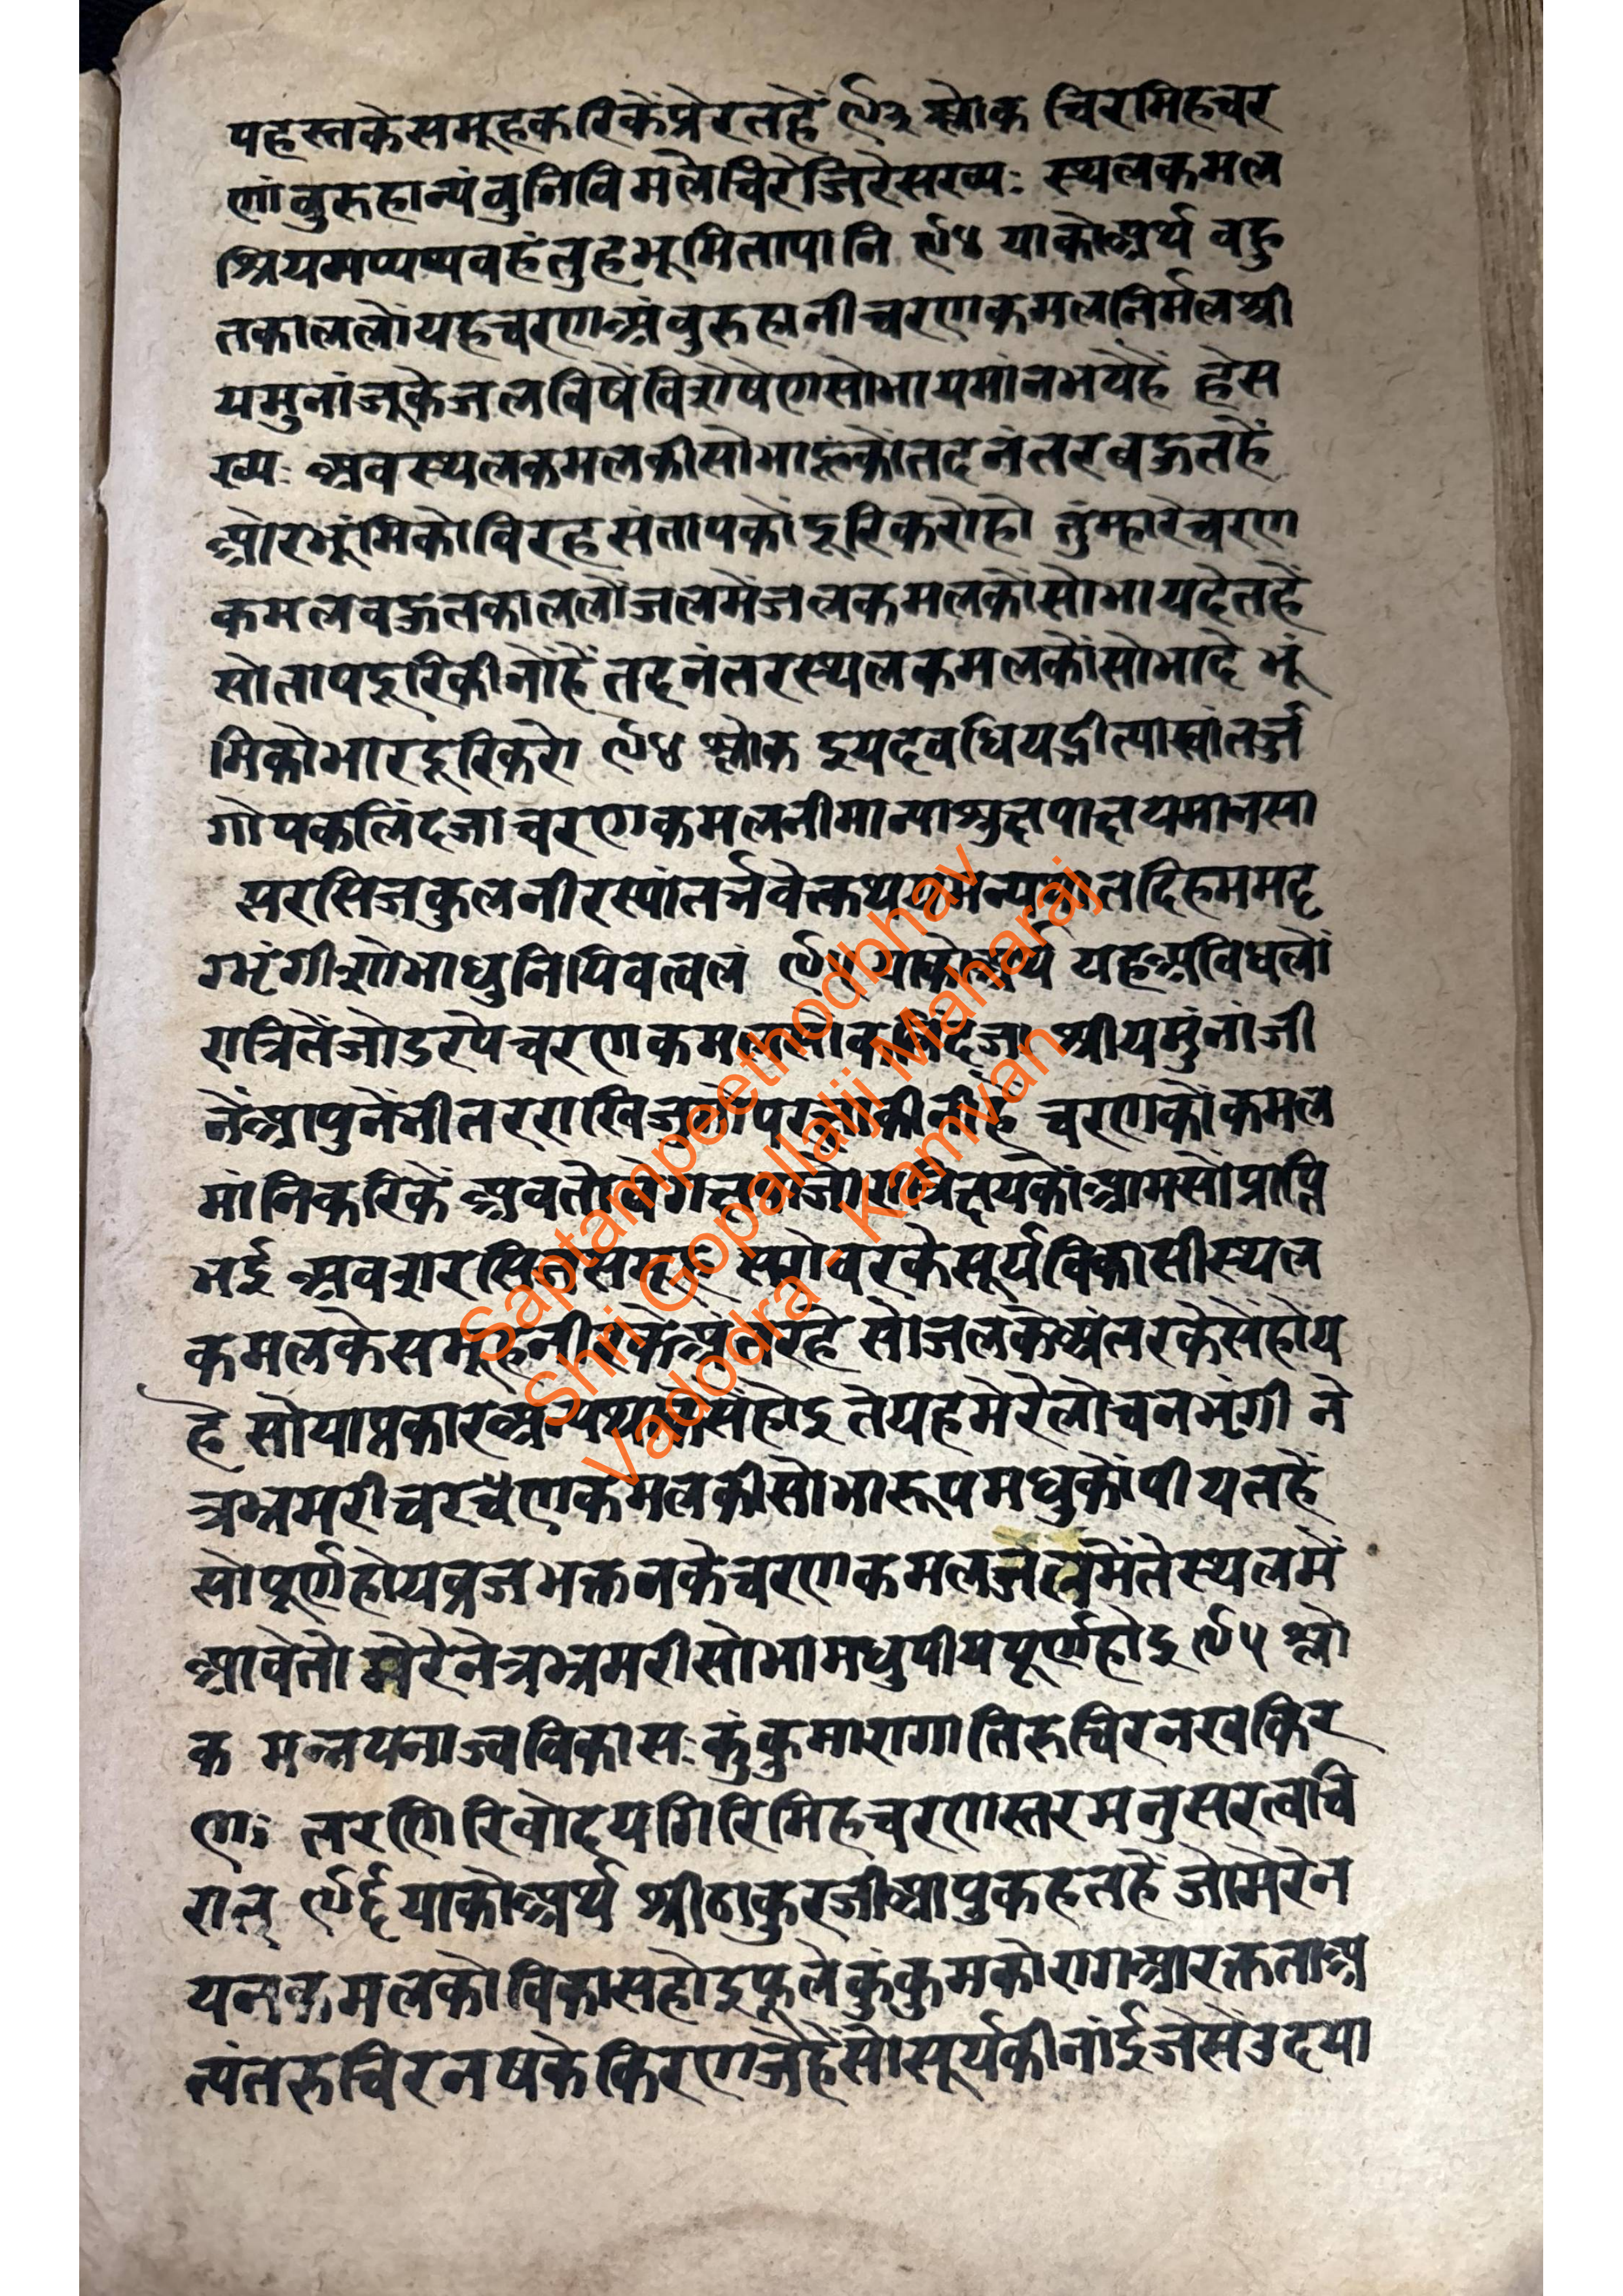 पहस्तकेसमूहकरिकेंप्रेरतहें ९३ श्लोक चिरमिहचर
णांवुरुहान्यंवुनिविमलेचिरेजिरेसख्यः स्थलकमल
श्रियमप्यप्यवहंतुहभूमितापानि ९४ याकोअर्थ वहु
तकाललोंयहचरणअंवुरुहानीचरणकमलनिर्मलश्री
यमुनांजूकेजलविषेंविशेषेणसोभायमांनभयेहें हेस
ख्यः अवस्थलकमलकीसोभाहूकोंतदनंतरवहुतहें
ओरभूंमिकोविरहसंतापकोंदूरिकरोहो तुंम्हारेचरण
कमलवहुतकाललोंजलमेंजलकमलकोंसोभायदेतहें
सोतापदूरिकीनोंहें तदनंतरस्थलकमलकोंसोभादे भूं
मिकोभारदूरिकरो ९४ श्लोक इयदवधियद्भीत्यास्वांतर्जु
गोपकलिंदजाचरणकमलनीमान्याअुह्यपाह्यमानसा
सरसिजकुलनीरस्यांतर्नवेत्कथयमन्यथातदिहममदृ
ग्भृंगीशोभाधुनिपिवत्वलं ९५ याकोअर्थ यहअवधिलों
रात्रितेंजोडरपेचरणकमल कलिंदजा श्रीयमुंनांजी
नेंआपुनेंभीतरराखि चरणकोंकमल
मांनिकरिकें अवतो सोंप्राप्ति
भई अव सरोवरकेसूर्यविकासीस्थल
कमलकेसमूहनीरकेअंतरहे सोजलकेअंतरकेसेंहोय
हे सोयाप्रकारअन्यथाकेसेंहोइ तेयहमेरेलोचनभृंगी ने
त्रभ्रमरीचरणकमलकीसोभारूपमधुकोंपीयतहें
सोपूर्णहोयव्रजभक्तनकेचरणकमलजलमेंतेस्थलमें
आवेतो मेरेनेत्रभ्रमरीसोभामधुपीयपूर्णहोइ ९५ श्लो
क मन्नयनाज्वविकासः कुंकुमारागातिरुचिरनखकिर
णः तरणिरिवोदयगिरिमिहचरणस्तरमनुसरत्वचि
रात् ९६ याकोअर्थ श्रीठाकुरजीआपुकहतहें जोमेरेन
यनकमलकोविकासहोइफूलेकुंकुमकोरागआरक्तताअ
त्यंतरुचिरनषकेकिरणजेहेंसोसूर्यकीनांईजेसेंउदया
Saptampeethodbhav
Shri Gopallalji Maharaj
Vadodra - Kamvan